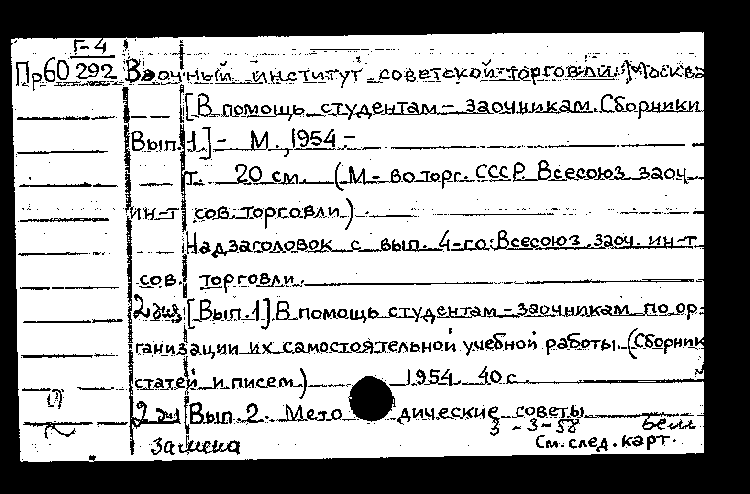 Г-4
Пр60 292 Заочный институт советской торговли. Москва
[В помощь студентам-заочникам. Сборники
Вып. 1.] - М., 1954 -
т. 20 см. (М-во торг. СССР. Всесоюз. заоч.
ин-т сов. торговли)
Надзаголовок с вып. 4-го: Всесоюз. заоч. ин-т
сов. торговли.
2 экз [Вып. 1] В помощь студентам-заочникам по ор-
ганизации их самостоятельной учебной работы. (Сборник
статей и писем) 1954. 40 с.
2 экз Вып. 2. Методические советы
3-3-58
замена См. след. карт.